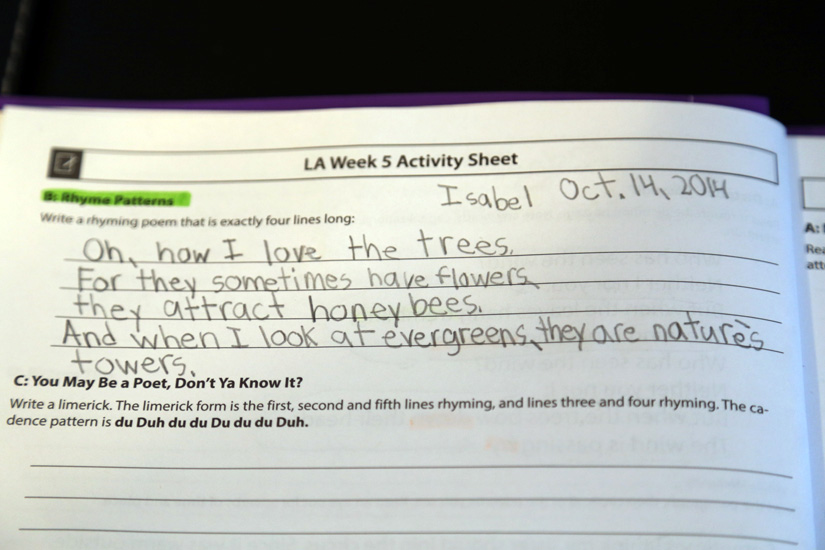 LA Week 5 Activity Sheet
B: Rhyme Patterns
Isabel Oct. 14, 2014
Write a rhyming poem that is exactly four lines long:
Oh, how I love the trees,
For they sometimes have flowers,
they attract honey bees.
And when I look at evergreens, they are nature's
towers.
C: You May Be a Poet, Don't Ya Know It?
Write a limerick. The limerick form is the first, second and fifth lines rhyming, and lines three and four rhyming. The ca-
dence pattern is du Duh du du Du du du Duh.
A: